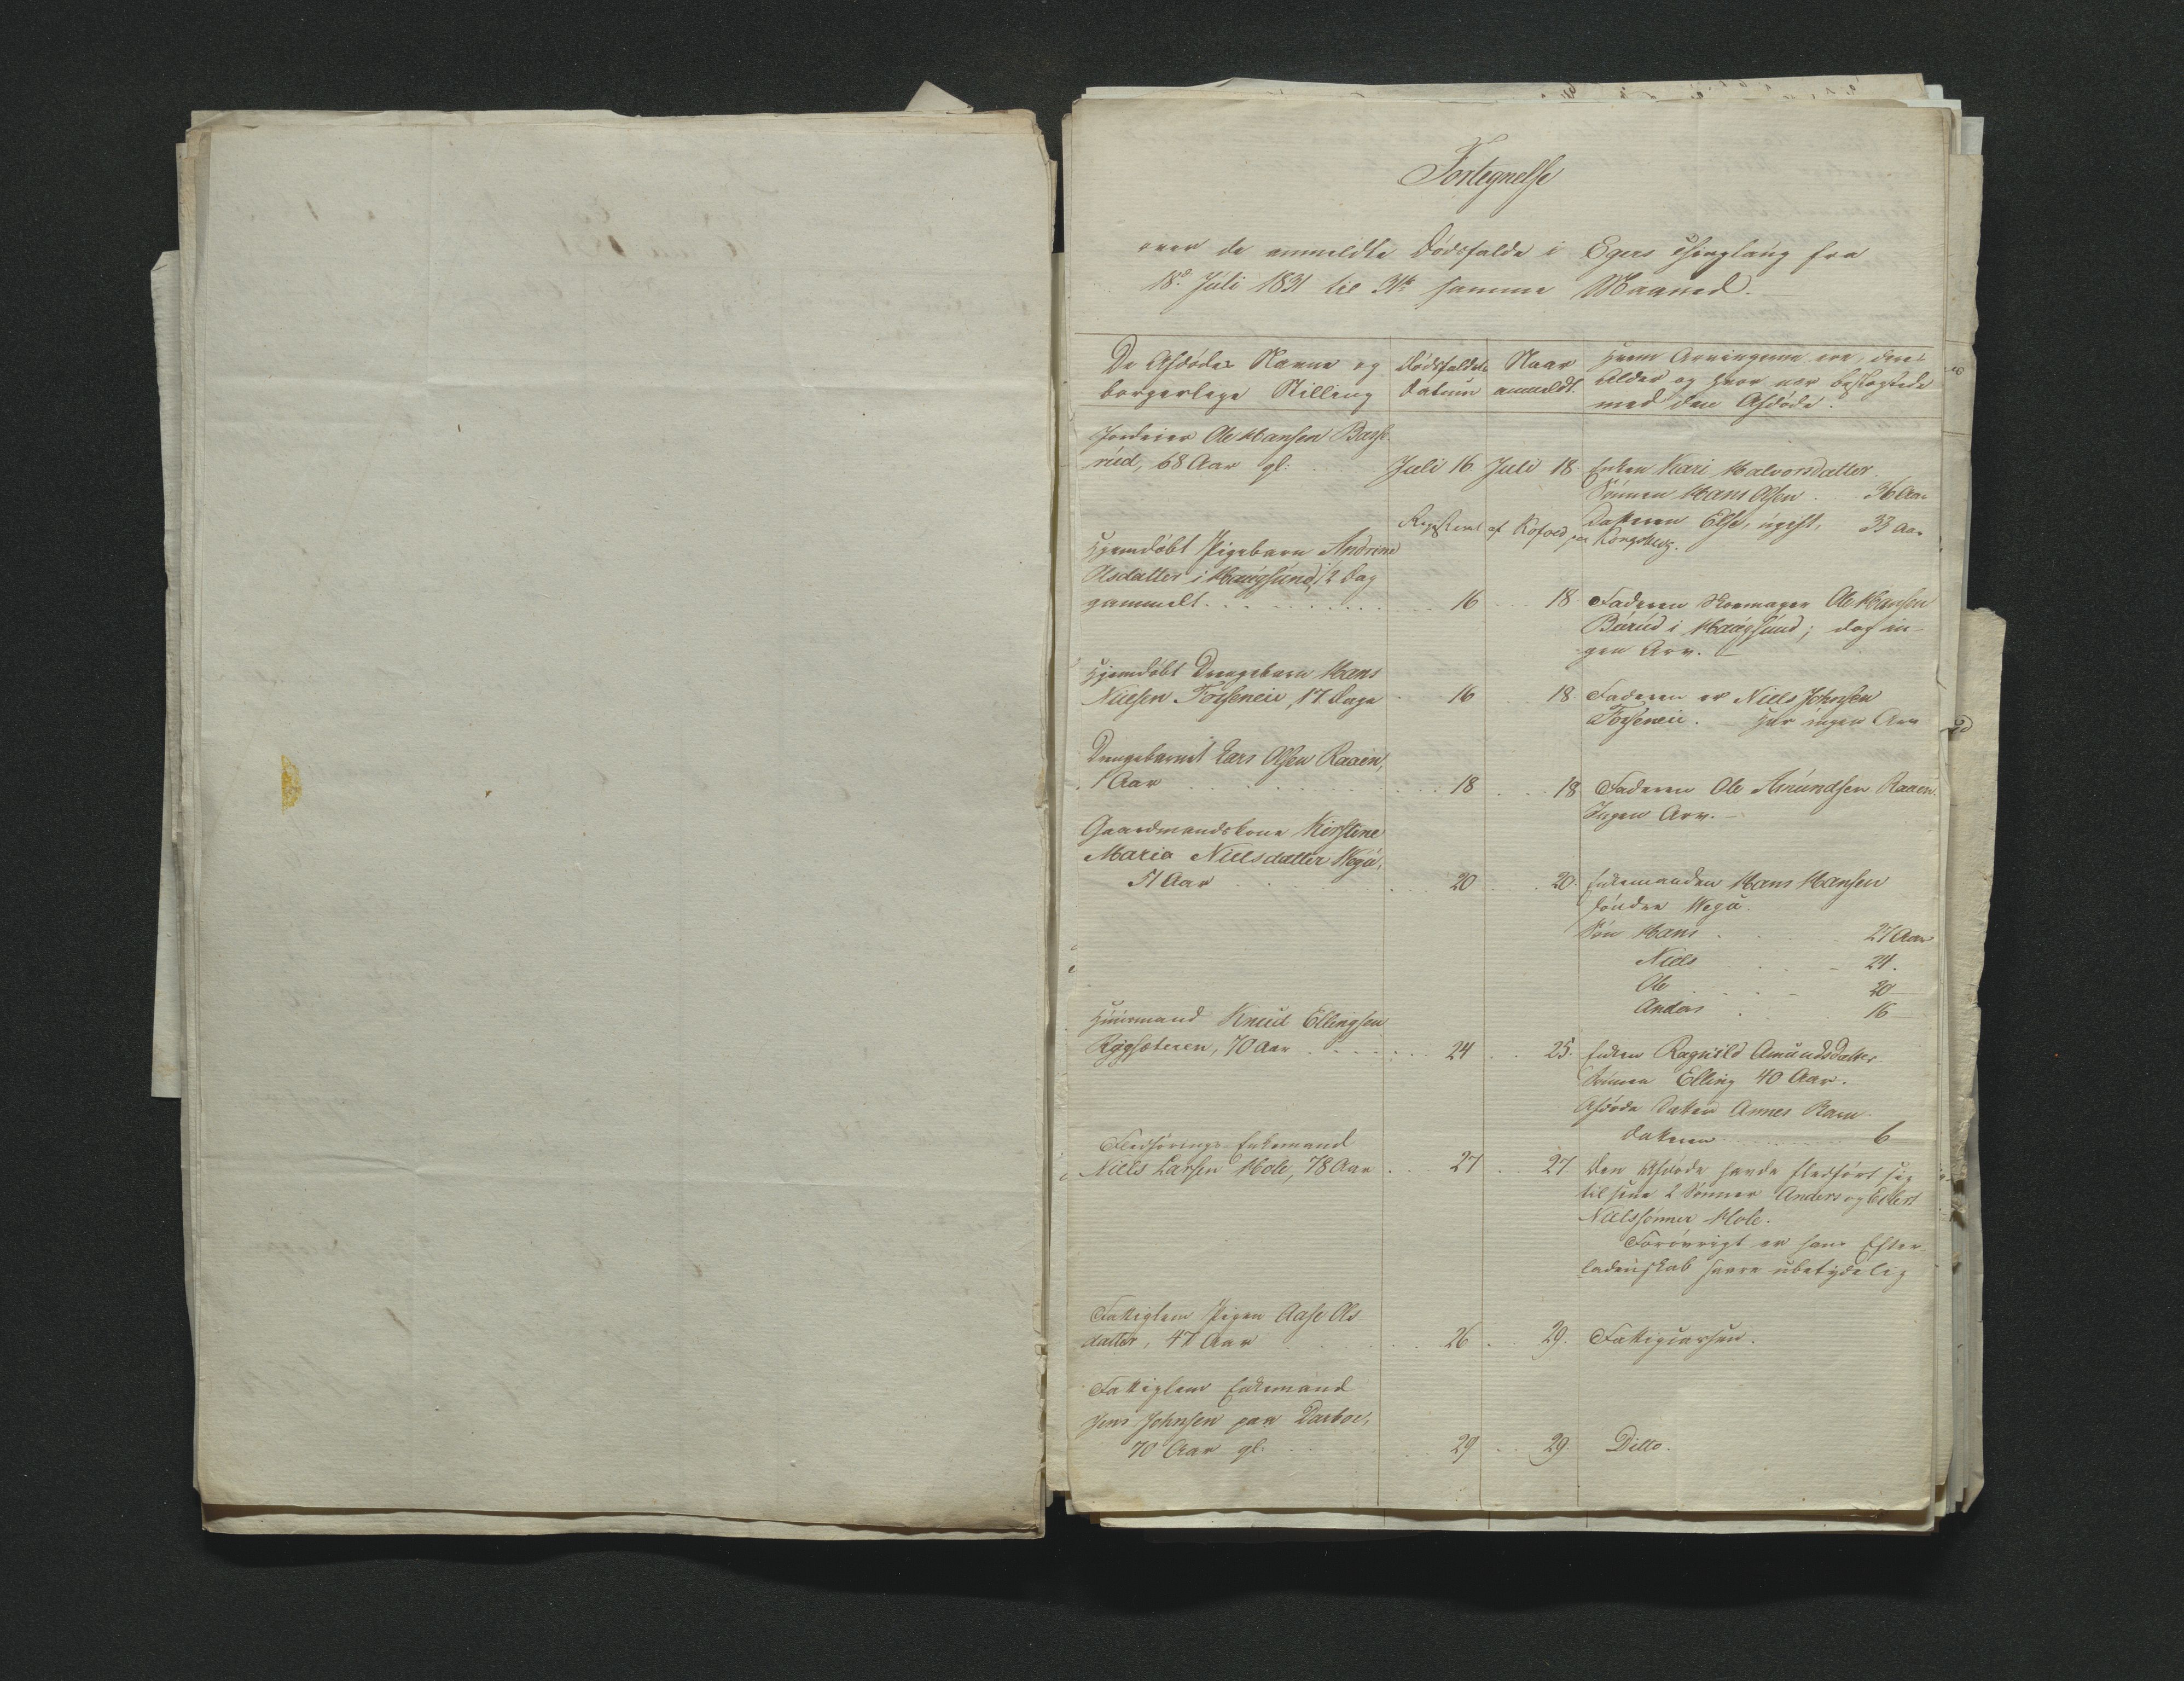 Fortegnelse
over de anmeldte Dödsfalde i Egers Thinglaug fra
18d. Juli 1831 til 31te samme Maaned.
De Afdödes Navne og
borgerlige Stilling
Dödsfaldets
Datum
Naar
anmeldt.
Hvem Arvingerne ere, deres
Alder og hvor nær beslægtede
med den Afdöde.
Jordeier Ole Hansen
rud, 68 Aar gl. Juli 16 Juli 18 Enken Kari Halvorsdatter
Sönnen Hans Olsen 36 Aar
Datteren Else, ugift, 33 Aar
Registeret af Kofoed paa Kongsberg.
Hjemdöbt Pigebarn Andrine
Olsdatter i Haugsund, 1/2 Dag
gammelt 16 18 Faderen Skomager Ole Hansen
Bärud i Haugsund; dog in-
gen Arv.
Hjemdöbt Drengebarn Hans
Nielsen Fosseneie, 17 Dage 16 18 Faderen er Niels Johnsen
Fosseneie. Her ingen Arv
Drengebarnet Lars Olsen Raaen,
1 Aar 18 18 Faderen Ole Amundsen Raaen.
Ingen Arv.
Gaardmandskone Kirstine
Maria Nielsdatter
51 Aar 20 20 Enkemanden Hans Hansen
Söndre
Sön Hans 27 Aar
Niels 24.
Ole 20
Anders 16
Huusmand Knud Ellingsen
Rygsæteren, 70 Aar 24 25. Enken Ragnild Amundsdatter
Sönnen Elling 40 Aar.
Afdöde Datter Annes Barn
Datteren 6
Fledförings-Enkemand
Niels Larsen Hole, 78 Aar 27 27 Den Afdöde havde fledfört sig
til sine 2 Sönner Anders og Edert
Nielssönner Hole.
Forövrigt er hans Efter
ladenskab svare ubetydelig
Fattiglem Pigen Aase Ols
datter, 47 Aar 26 29. Fattigvæsen.
Fattiglem Enkemand
Jens Johnsen paa Darboe,
70 Aar gl. 29 29 Ditto.